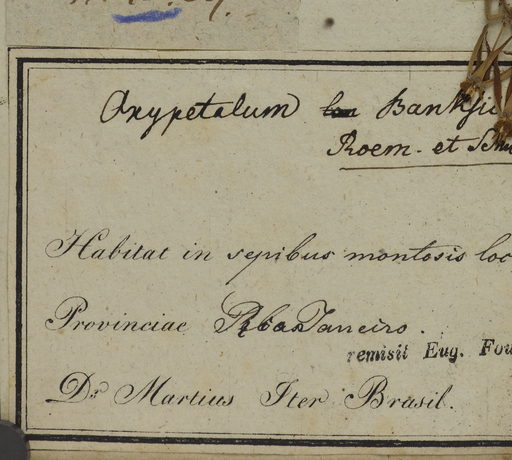 Oxypetalum Banksii
Roem. et Schu
Habitat in sepibus montosis loc
Provinciae Janeiro.
remisit Eug. Fou
Dr Martius Iter Brasil.